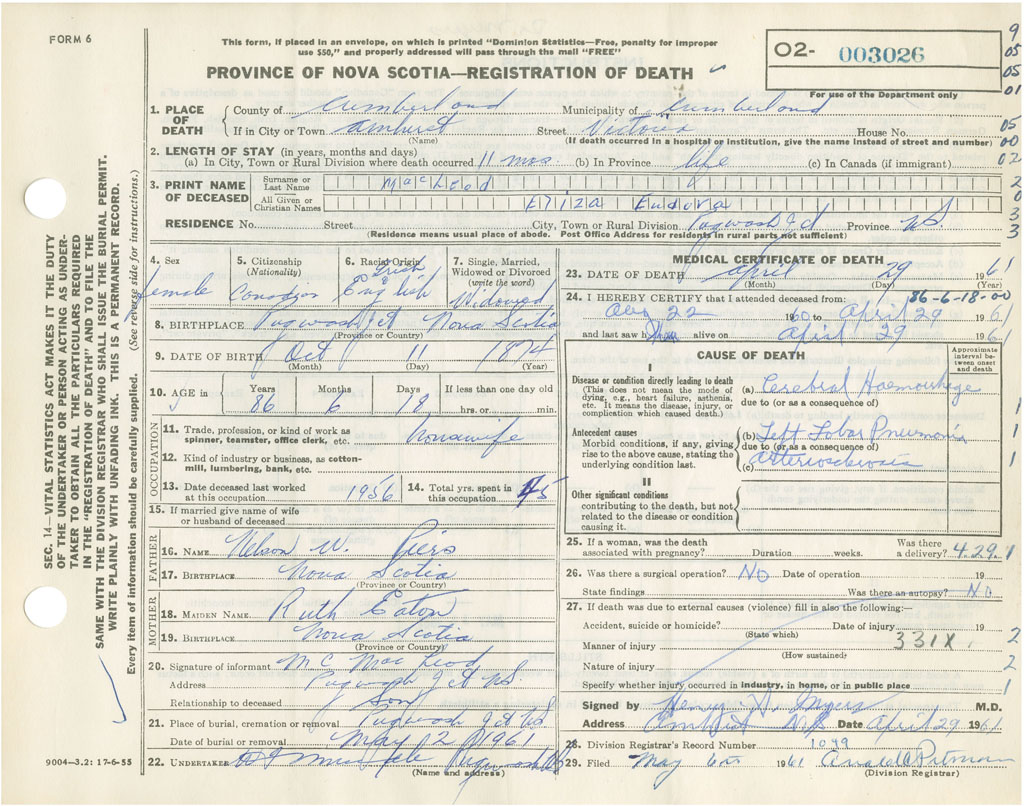 FORM 6
This form, if placed in an envelope, on which is printed "Dominion Statistics—Free, penalty for improper
use $50," and properly addressed will pass through the mail "FREE"
PROVINCE OF NOVA SCOTIA—REGISTRATION OF DEATH
O2- 003026
For use of the Department only
9
05
05
01
05
00
02
2
0
3
3
1. PLACE OF DEATH County of Cumberland Municipality of Cumberland
If in City or Town Amherst Street Victoria House No.
(Name) (If death occurred in a hospital or institution, give the name instead of street and number)
2. LENGTH OF STAY (in years, months and days)
(a) In City, Town or Rural Division where death occurred 11 mos. (b) In Province life (c) In Canada (if immigrant)
3. PRINT NAME OF DECEASED
Surname or Last Name MacLeod
All Given or Christian Names Eliza Eudora
RESIDENCE No. Street City, Town or Rural Division Pugwash Jct Province N.S.
(Residence means usual place of abode. Post Office Address for residents in rural parts not sufficient)
4. Sex Female
5. Citizenship (Nationality) Canadian
6. Racial Origin Irish English
7. Single, Married, Widowed or Divorced (write the word) Widowed
8. BIRTHPLACE Pugwash Jct Nova Scotia
(Province or Country)
9. DATE OF BIRTH Oct 11 1874
(Month) (Day) (Year)
10. AGE in Years 86 Months 6 Days 18 If less than one day old
hrs. or min.
OCCUPATION
11. Trade, profession, or kind of work as
spinner, teamster, office clerk, etc.
12. Kind of industry or business, as cotton-
mill, lumbering, bank, etc.
13. Date deceased last worked at this occupation 1956
14. Total yrs. spent in this occupation 45
15. If married give name of wife
or husband of deceased
FATHER
16. NAME Nelson W. Piers
17. BIRTHPLACE Nova Scotia
(Province or Country)
MOTHER
18. MAIDEN NAME Ruth Eaton
19. BIRTHPLACE Nova Scotia
(Province or Country)
20. Signature of informant M C MacLeod
Address Pugwash Jct N.S.
Relationship to deceased son
21. Place of burial, cremation or removal Pugwash Jct N.S.
Date of burial or removal May 2 1961
22. UNDERTAKER Pugwash N.S.
(Name and address)
MEDICAL CERTIFICATE OF DEATH
23. DATE OF DEATH April 29 1961
(Month) (Day) (Year)
24. I HEREBY CERTIFY that I attended deceased from: 86-6-18-00
Aug 22 1960 to April 29 1961
and last saw her alive on April 29 1961
CAUSE OF DEATH
Approximate interval between onset and death
I
Disease or condition directly leading to death
(This does not mean the mode of
dying, e.g., heart failure, asthenia,
etc. It means the disease, injury, or
complication which caused death.)
(a) Cerebral Haemorrhage
due to (or as a consequence of)
Antecedent causes
Morbid conditions, if any, giving
rise to the above cause, stating the
underlying condition last.
(b) Left Lobar Pneumonia
due to (or as a consequence of)
(c) Arteriosclerosis
II
Other significant conditions
contributing to the death, but not
related to the disease or condition
causing it.
1
1
1
25. If a woman, was the death
associated with pregnancy? Duration weeks. Was there a delivery? 4.29.1
26. Was there a surgical operation? NO Date of operation 19
State findings Was there an autopsy? NO
27. If death was due to external causes (violence) fill in also the following:—
Accident, suicide or homicide? Date of injury 19
(State which)
Manner of injury 331X. 2
(How sustained)
Nature of injury 2
Specify whether injury occurred in industry, in home, or in public place 1
Signed by M.D.
Address Amherst N.S. Date April 29 1961
28. Division Registrar's Record Number 1049
29. Filed May 1961
(Division Registrar)
SEC. 14—VITAL STATISTICS ACT MAKES IT THE DUTY
OF THE UNDERTAKER OR PERSON ACTING AS UNDER-
TAKER TO OBTAIN ALL THE PARTICULARS REQUIRED
IN THE "REGISTRATION OF DEATH" AND TO FILE THE
SAME WITH THE DIVISION REGISTRAR WHO SHALL ISSUE THE BURIAL PERMIT.
WRITE PLAINLY WITH UNFADING INK. THIS IS A PERMANENT RECORD.
Every item of information should be carefully supplied. (See reverse side for instructions.)
9004—3.2: 17-6-55